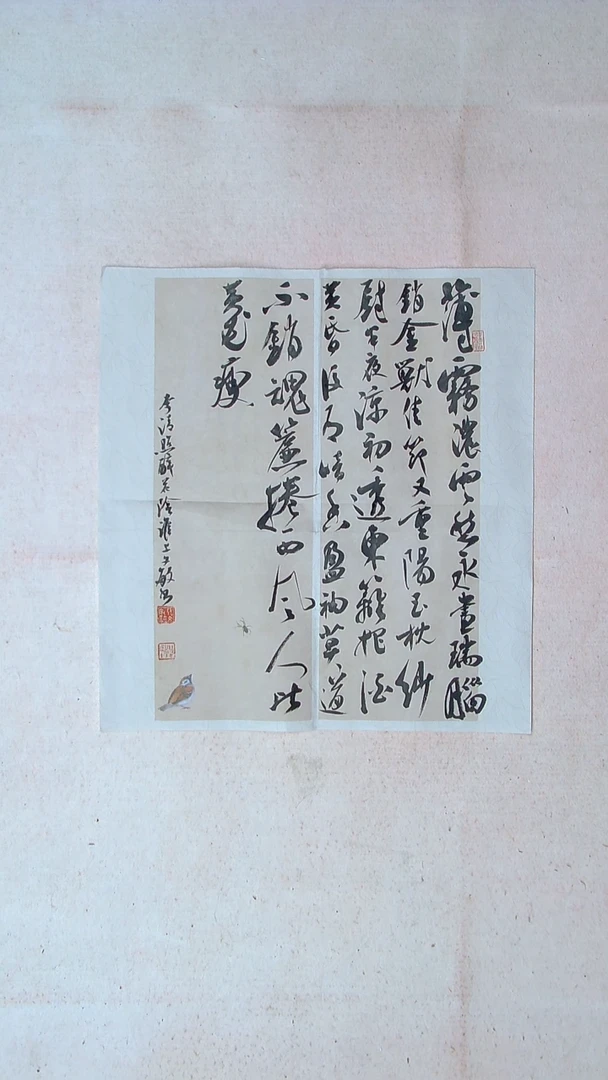 薄霧濃雲愁永晝瑞腦
銷金獸佳節又重陽玉枕紗
厨半夜涼初透東籬把酒
黃昏後有暗香盈袖莫道
不銷魂簾捲西风人比
黃花瘦
李清照醉花陰